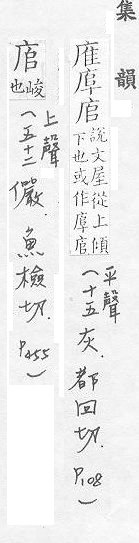 集韻
㢈 說文屋從上傾下也或作
(平聲
十五灰. 都回切. P.108)
峻也
(上聲
五十二儼. 魚檢切. P455)